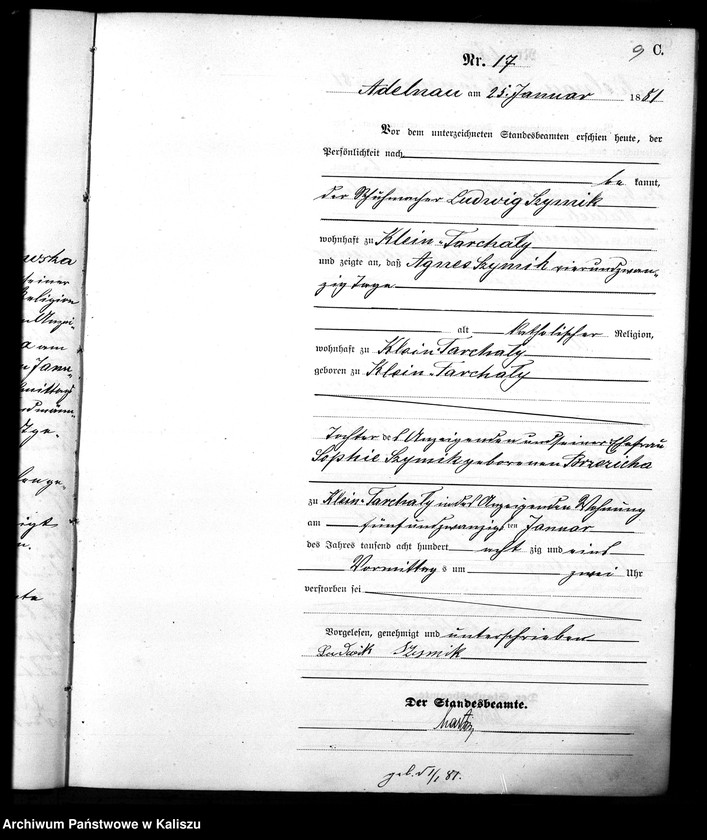 9 C.
Nr. 17
Adelnau am 25. Januar 1881
Vor dem unterzeichneten Standesbeamten erschien heute, der
Persönlichkeit nach
be kannt,
der Schuhmacher Ludwig Szymik
wohnhaft zu Klein-Tarchaly
und zeigte an, daß Agnes Szymik vierundzwan-
zig Tage
alt katholischer Religion,
wohnhaft zu Klein-Tarchaly
geboren zu Klein-Tarchaly
Tochter des Anzeigenden und seiner Ehefrau
Sophie Szymik geborenen Brzezicha
zu Klein-Tarchaly in des Anzeigenden Wohnung
am fünfundzwanzigsten Januar
des Jahres tausend acht hundert achtzig und eins
Vormittags um zwei Uhr
verstorben sei
Vorgelesen, genehmigt und unterschrieben
Ludwik Szymik
Der Standesbeamte.
geb. d 1/1 81.
Archiwum Państwowe w Kaliszu